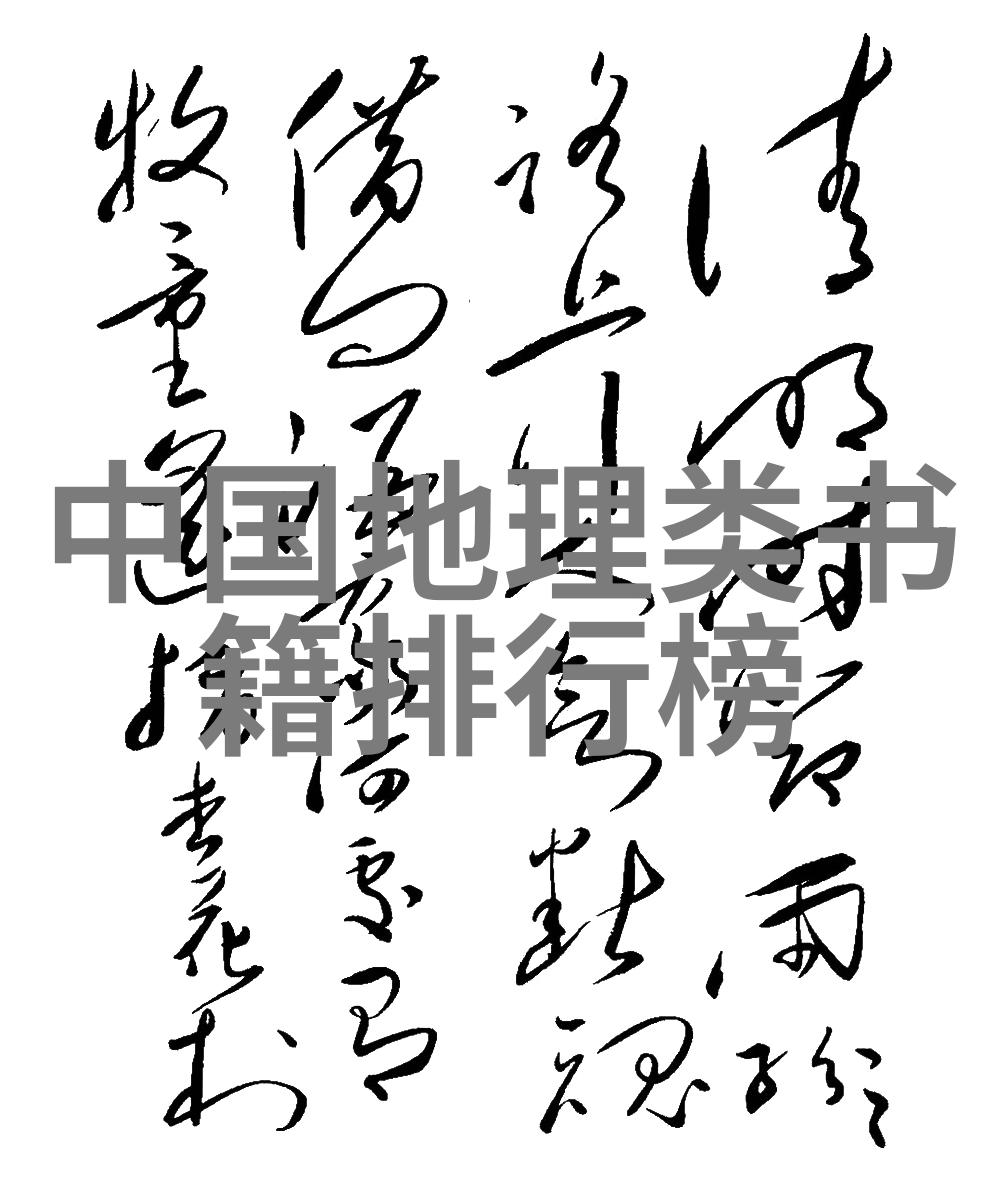 清明時節雨紛々
路上行人欲斷魂
借问酒家何处有
牧童遥指杏花村
中国地理类书
籍排行榜